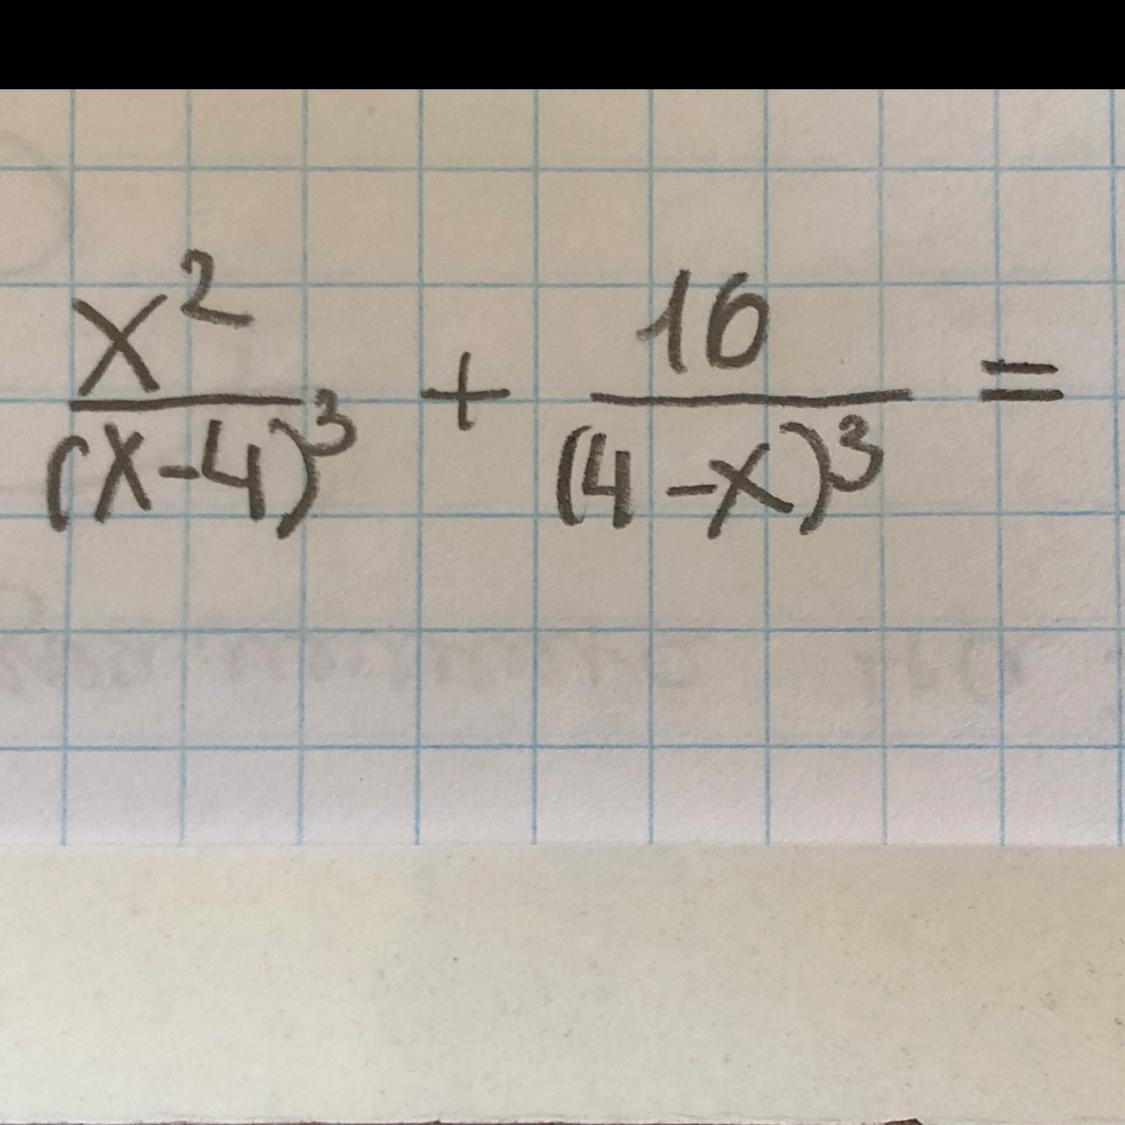 x²/(x-4)³ + 16/(4-x)³ =